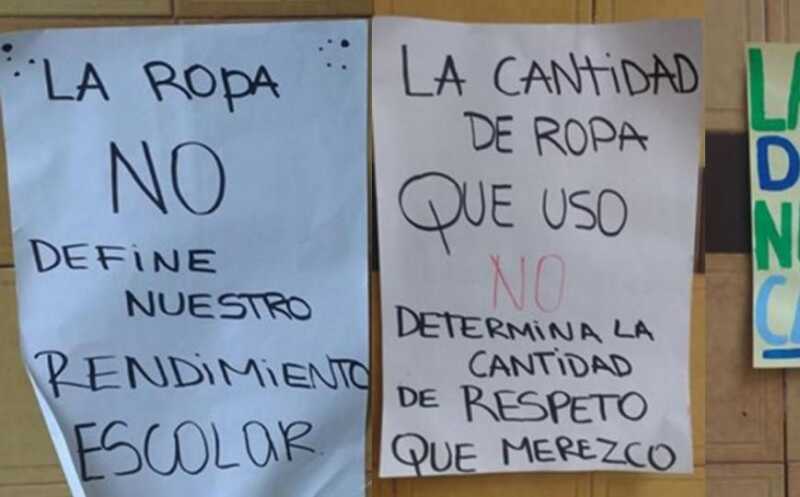 LA ROPA
NO
DEFINE
NUESTRO
RENDIMIENTO
ESCOLAR.
LA CANTiDAD
DE ROPA
QUE USO
NO
DETERMINA LA
CANTiDAD
DE RESPETO
QUE MEREZCO
LA